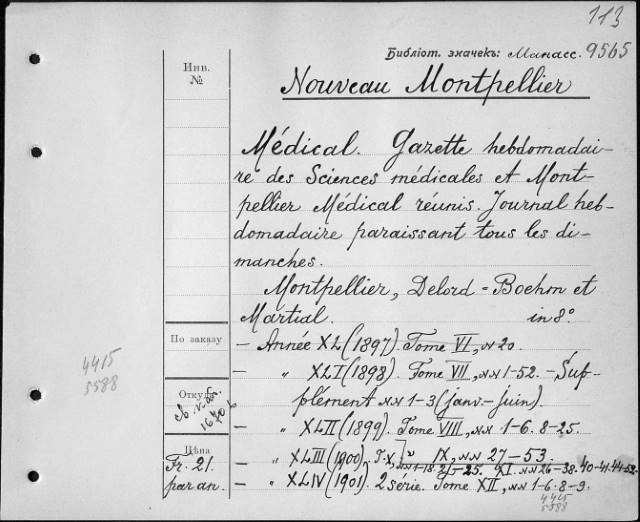 113
Библіот. значекъ: Манасс. 9565
Инв.
№
Nouveau Montpellier
Médical. Gazette hebdomadai-
re des Sciences médicales et Mont-
pellier Médical réunis. Journal heb-
domadaire paraissant tous les di-
manches.
Montpellier, Delord-Boehm et
Martial. in 8°
По заказу
— Année XL (1897). Tome VI, №20.
4415
5588
— „ XLI (1898). Tome VII, №№ 1-52. — Sup-
Откуда
plément №№ 1-3 (janv.-juin).
— „ XLII (1899). Tome VIII, №№ 1-6. 8-25.
Цѣна
— „ XLIII (1900). T. X, „ IX, №№ 27-53.
Fr. 21.
№№ 1-18. 21-25. XI. №№ 26-38. 40-41. 44-52.
par an.
— „ XLIV (1901). 2 série. Tome XII, №№ 1-6. 8-9.
4415
5588